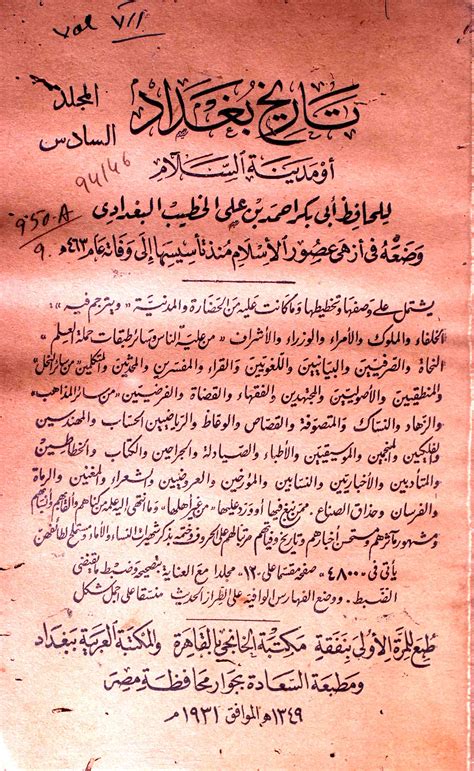 Vol VII
تاريخ بغداد
المجلد
السادس
أو مدينة السلام
94/46
للحافظ أبي بكر احمد بن علي الخطيب البغدادي
950-A
9.
وضعه في أزهى عصور الإسلام منذ تأسيسها إلى وفاته عام ٤٦٣هـ
يشتمل على وصفها وتخطيطها وما كانت عليه من الحضارة والمدنية » ويترجم فيه «
الخلفاء والملوك والأمراء والوزراء والأشراف » من علية الناس وسائر طبقات حملة العلم «
النحاة والصرفيين والبيانيين واللغويين والقراء والمفسرين والمحدثين والمتكلمين » من سائر النحل «
والمنطقيين والأصوليين والمجتهدين والفقهاء والقضاة والفرضيين » من سائر المذاهب «
والزهاد والنساك والمتصوفة والقصاص والوعاظ والرياضيين الحساب والمهندسين
والفلكيين والمنجمين والموسيقيين والأطباء والصيادلة والجراحين والكتاب والخطاطين
والمتأدبين والأخباريين والنسابين والمؤرخين والعروضيين والشعراء والمغنين والرماة
والفرسان وحذاق الصناع . ممن نبغ فيها أو ورد عليها » من غير أهلها « وما انتهى اليه علمه من كناهم
ومشهور مآثرهم ومستحسن أخبارهم وتاريخ وفاتهم مرتبا لهم على الحروف وختمه بذكر شهيرات النساء
يأتي في ٤٨٠٠ صفحة مقسمة على ١٢ مجلدا مع العناية بتصحيحه وضبط ما يقتضي
الضبط . ووضع الفهارس الوافية على الطراز الحديث منسقا على اجمل شكل
طبع للمرة الأولى بنفقة مكتبة الخانجي بالقاهرة والمكتبة العربية ببغداد
ومطبعة السعادة بجوار محافظة مصر
١٣٤٩هـ الموافق ١٩٣١م